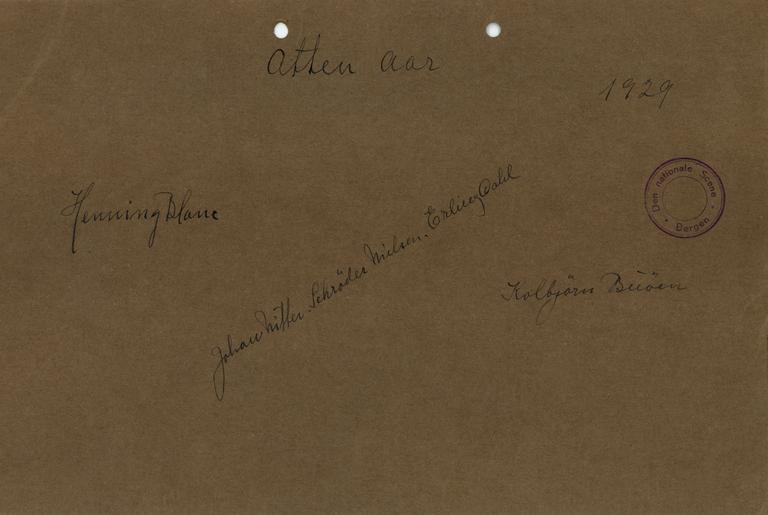 Atten Aar
1929
Den nationale Scene
Bergen
Henning Blanc
Johan Witter. Schröder Nielsen. Erling Dahl
Kolbjörn Buöen